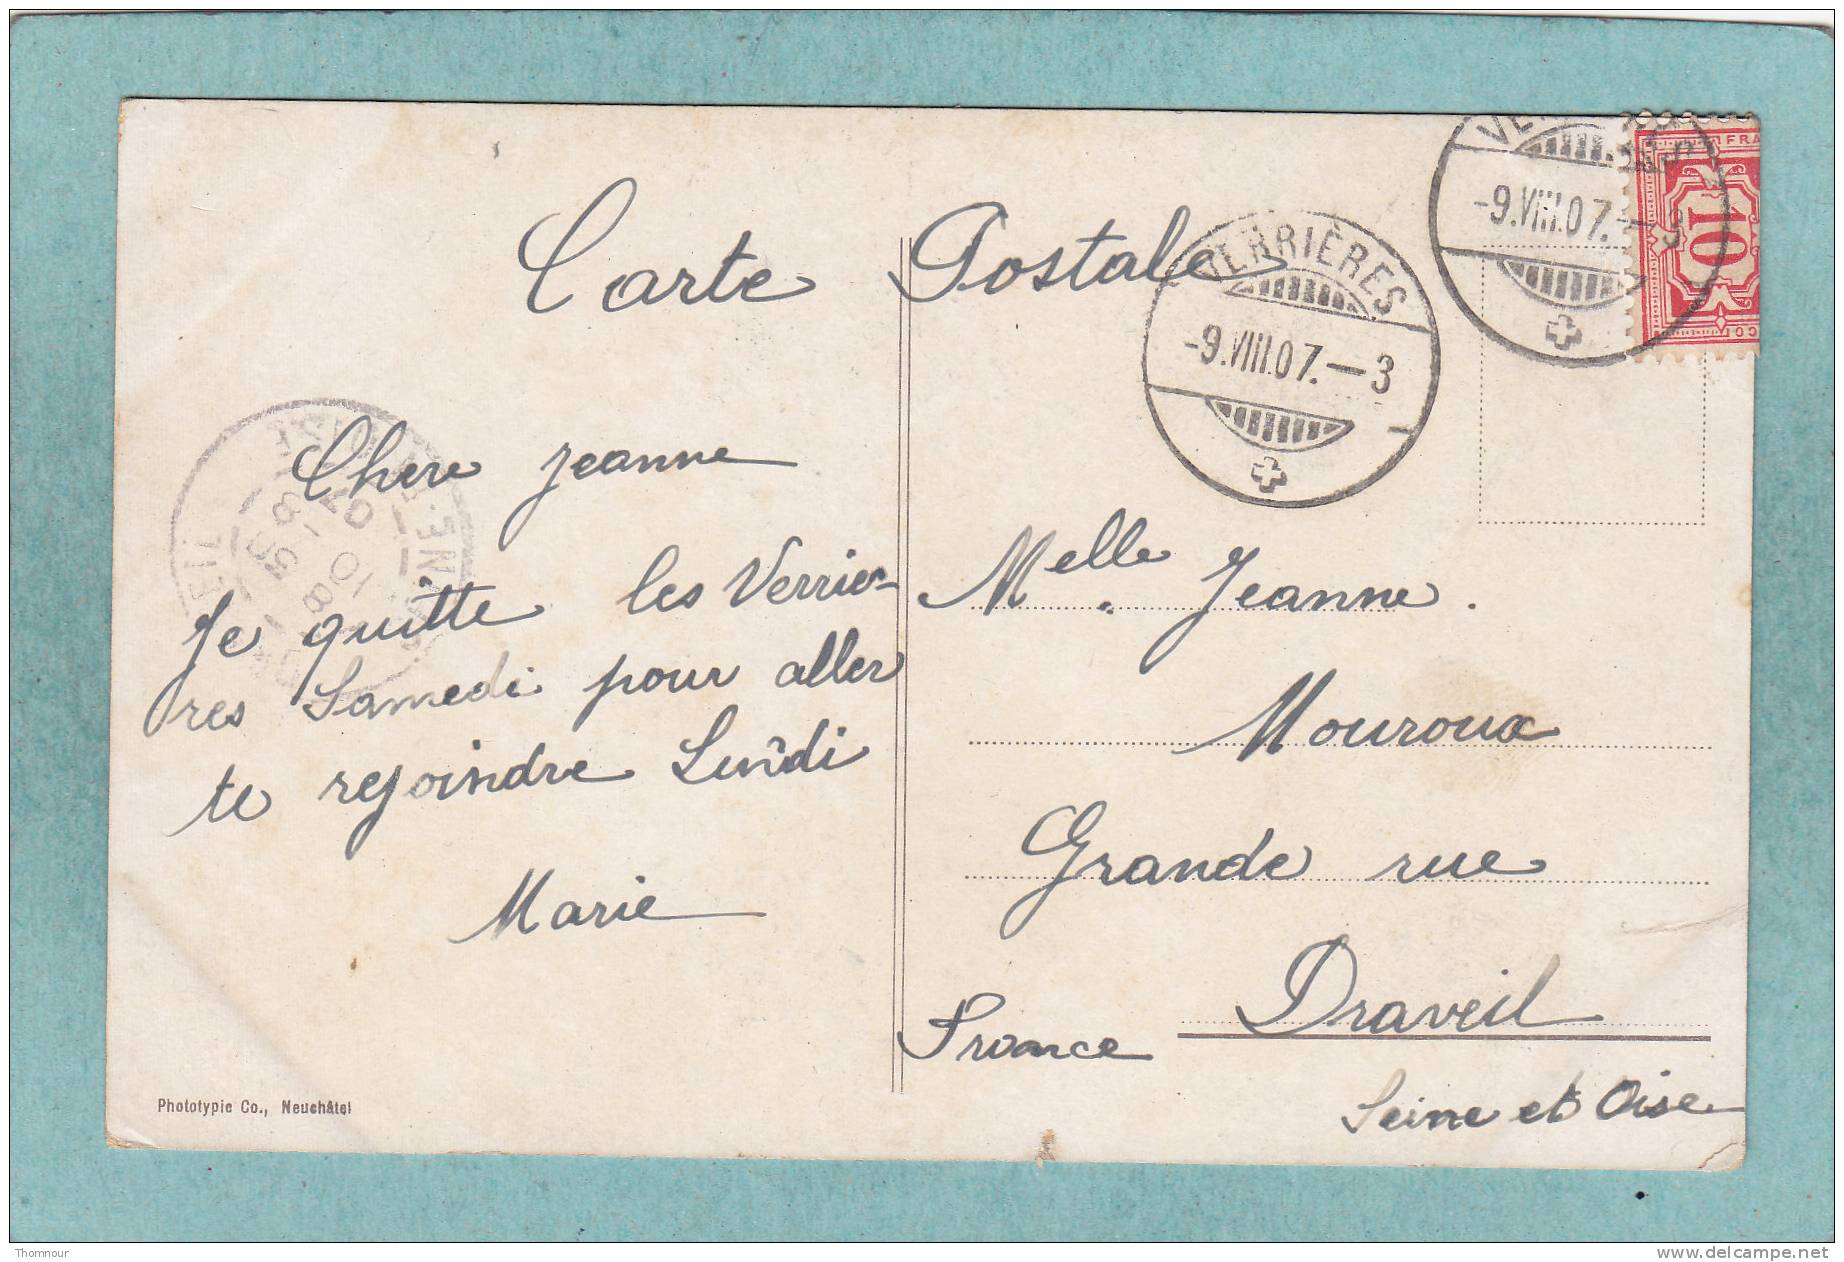 Carte Postale
VERRIÈRES
-9.VIII.07.-3
-9.VIII.07.-9
FRA
10
CO
Chere Jeanne
Je quitte les Verriè-
res Samedi pour aller
te rejoindre Lundi
Marie
Melle Jeanne.
Mouroux
Grande rue
Draveil
France
Seine et Oise
Phototypie Co., Neuchâtel
Thomnour
www.delcampe.net